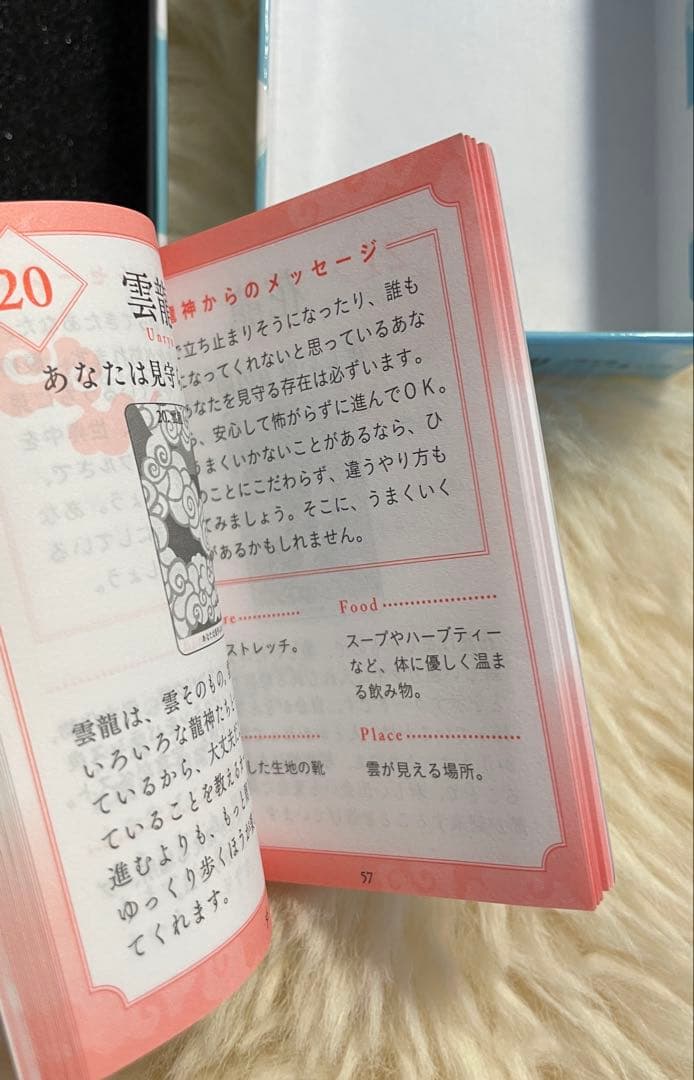 20
雲龍
Unry
あなたは見守
20. 雲龍
雲龍は、雲そのもの。
いろいろな龍神たちと
ているから、大丈夫
ていることを教える
進むよりも、もっと
ゆっくり歩くほうが
てくれます。
神からのメッセージ
で立ち止まりそうになったり、誰も
になってくれないと思っているあな
あなたを見守る存在は必ずいます。
ら、安心して怖がらずに進んでＯＫ。
うまくいかないことがあるなら、ひ
のことにこだわらず、違うやり方も
てみましょう。そこに、うまくいく
があるかもしれません。
re
ストレッチ。
Food
スープやハーブティー
など、体に優しく温ま
る飲み物。
した生地の靴
Place
雲が見える場所。
57